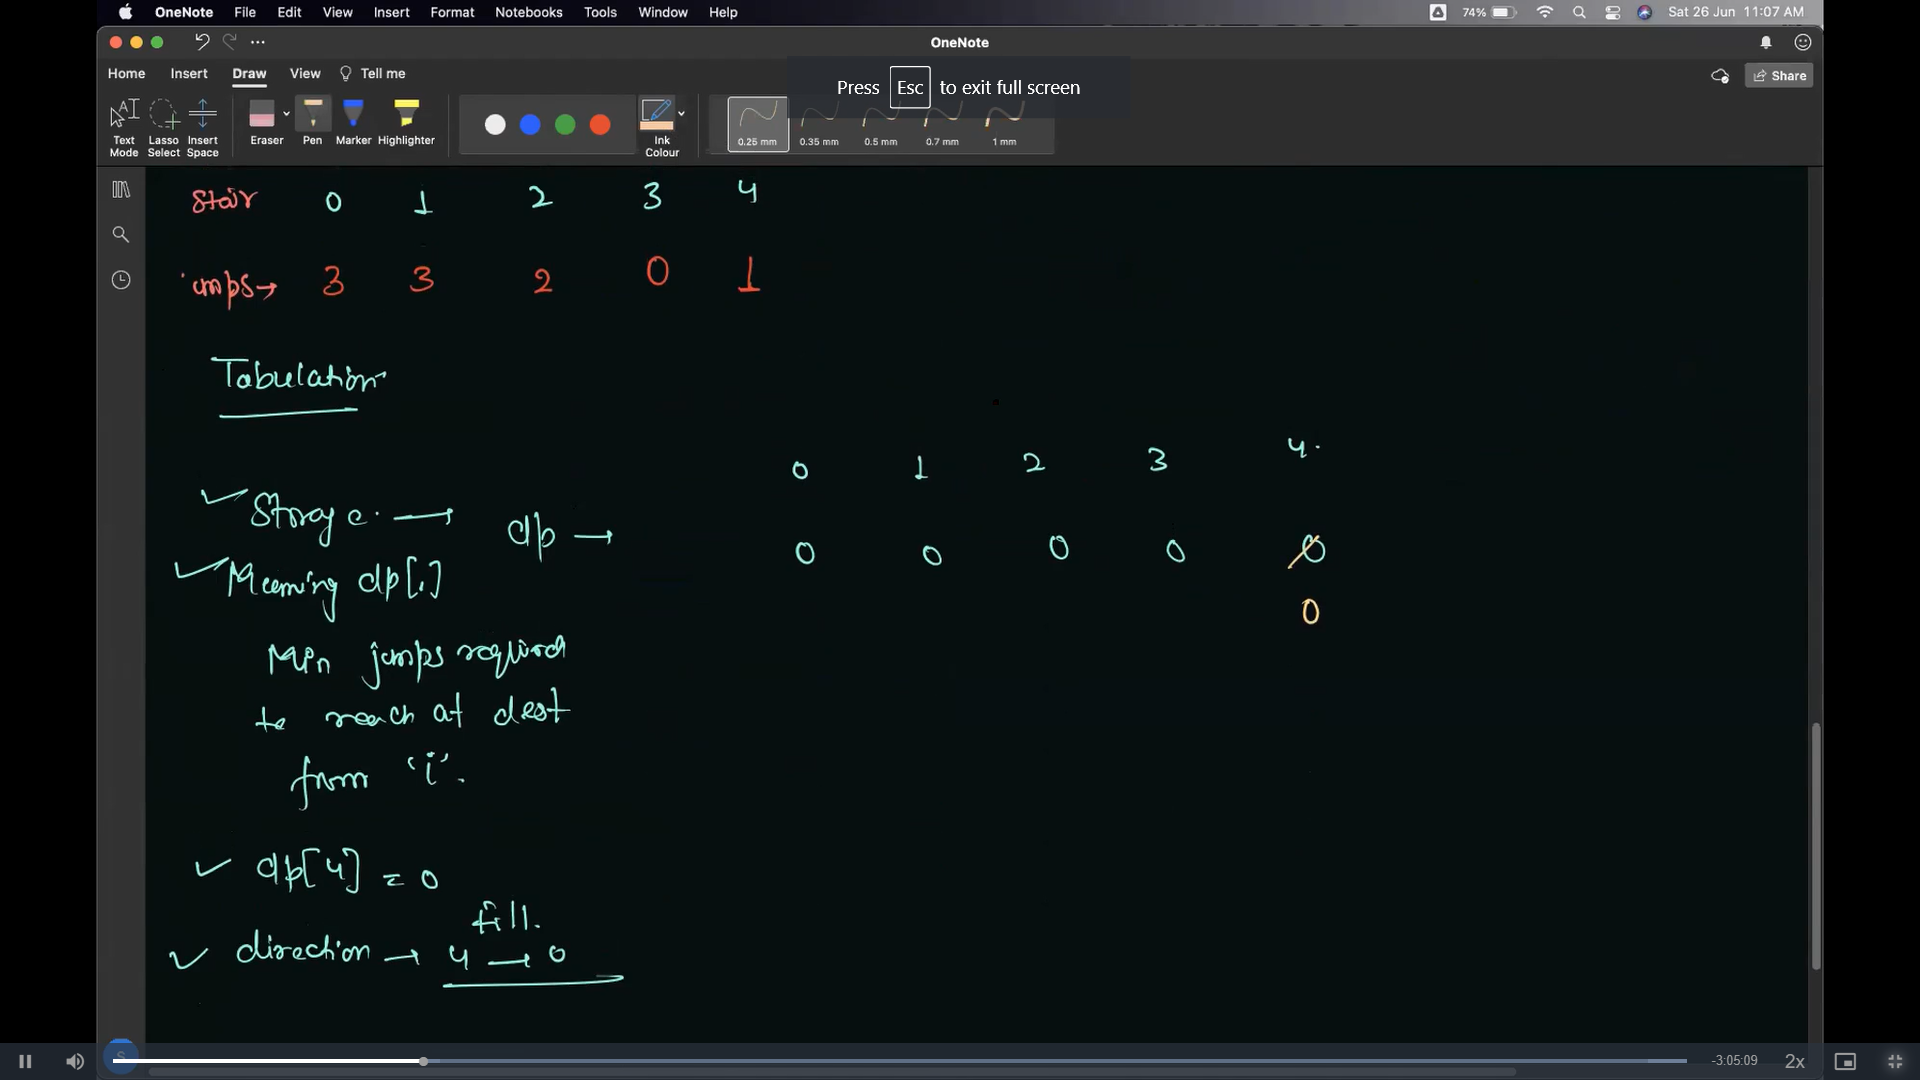 OneNote File Edit View Insert Format Notebooks Tools Window Help 74% Sat 26 Jun 11:07 AM
OneNote
Home Insert Draw View Tell me Share
Press Esc to exit full screen
Text Mode Lasso Select Insert Space Eraser Pen Marker Highlighter Ink Colour 0.25 mm 0.35 mm 0.5 mm 0.7 mm 1 mm
Stair 0 1 2 3 4
umps→ 3 3 2 0 1
Tabulation
0 1 2 3 4
✓ Storage → dp → 0 0 0 0 0
✓ Meaning dp[i]
0
Min jumps required
to reach at dest
from 'i'.
✓ dp[4] = 0
fill.
✓ direction → 4 → 0
S
-3:05:09 2x